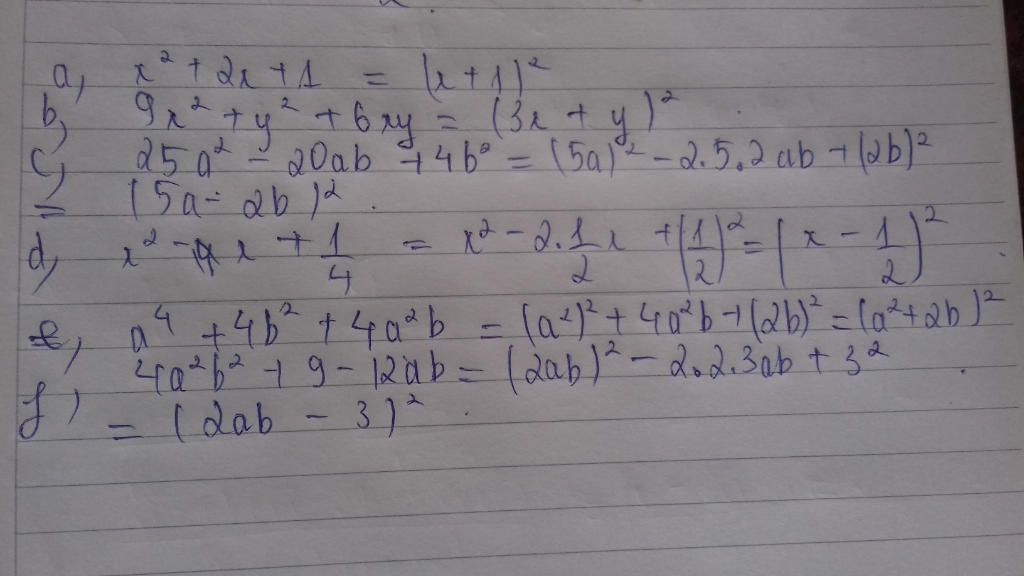 a, x² + 2x + 1 = (x + 1)²
b, 9x² + y² + 6xy = (3x + y)²
c, 25a² - 20ab + 4b² = (5a)² - 2.5.2ab + (2b)²
= (5a - 2b)².
d, x² - x + 1/4 = x² - 2.1/2x + (1/2)² = (x - 1/2)²
e, a⁴ + 4b² + 4a²b = (a²)² + 4a²b + (2b)² = (a² + 2b)²
f, 4a²b² + 9 - 12ab = (2ab)² - 2.2.3ab + 3²
= (2ab - 3)².